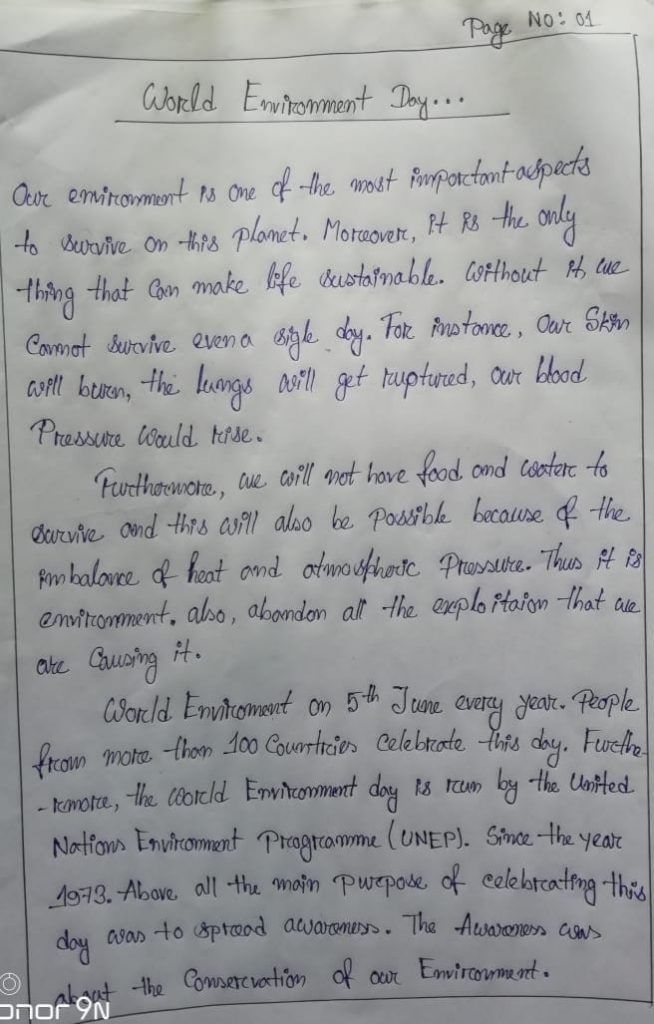 Page No: 01
World Environment Day...
Our environment is one of the most important aspects
to survive on this planet. Moreover, it is the only
thing that can make life sustainable. Without it, we
Cannot survive even a sigle day. For instance, our Skin
will burn, the lungs will get ruptured, our blood
Pressure would rise.
Furthermore, we will not have food and water to
survive and this will also be possible because of the
imbalance of heat and atmospheric Pressure. Thus it is
environment. also, abandon all the exploitaion that we
are Causing it.
World Enviroment on 5th June every year. People
from more than 100 Countries celebrate this day. Furthe
-rmore, the World Environment day is run by the United
Nations Environment Programme (UNEP). Since the year
1973. Above all the main purpose of celebrating this
day was to spread awareness. The Awareness was
about the Conservation of our Environment.
onor 9N